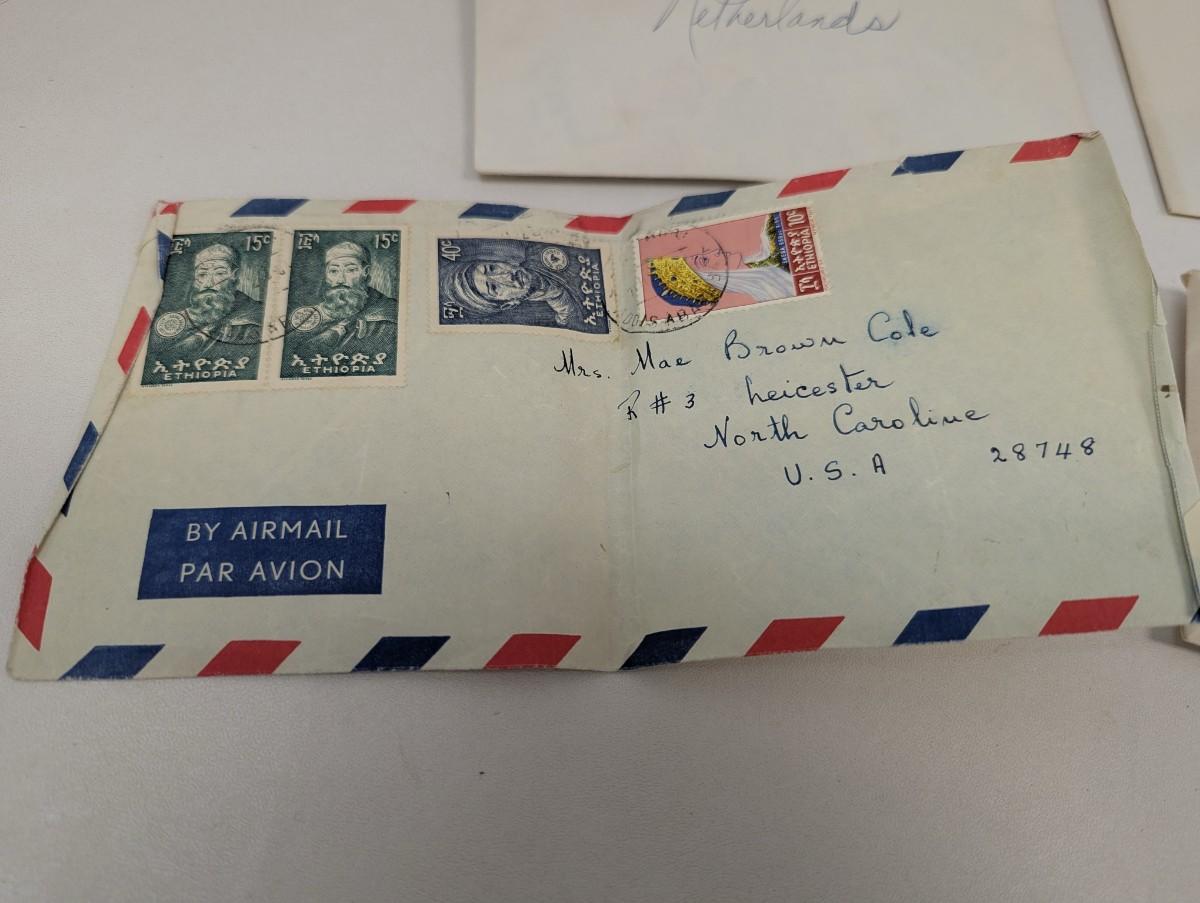 Netherlands
15c
ኢትዮጵያ
ETHIOPIA
15c
ኢትዮጵያ
ETHIOPIA
40c
ኢትዮጵያ
ETHIOPIA
10c
ኢትዮጵያ
ETHIOPIA
Mrs. Mae Brown Cole
R # 3 Leicester
North Caroline
U. S. A 28748
BY AIRMAIL
PAR AVION